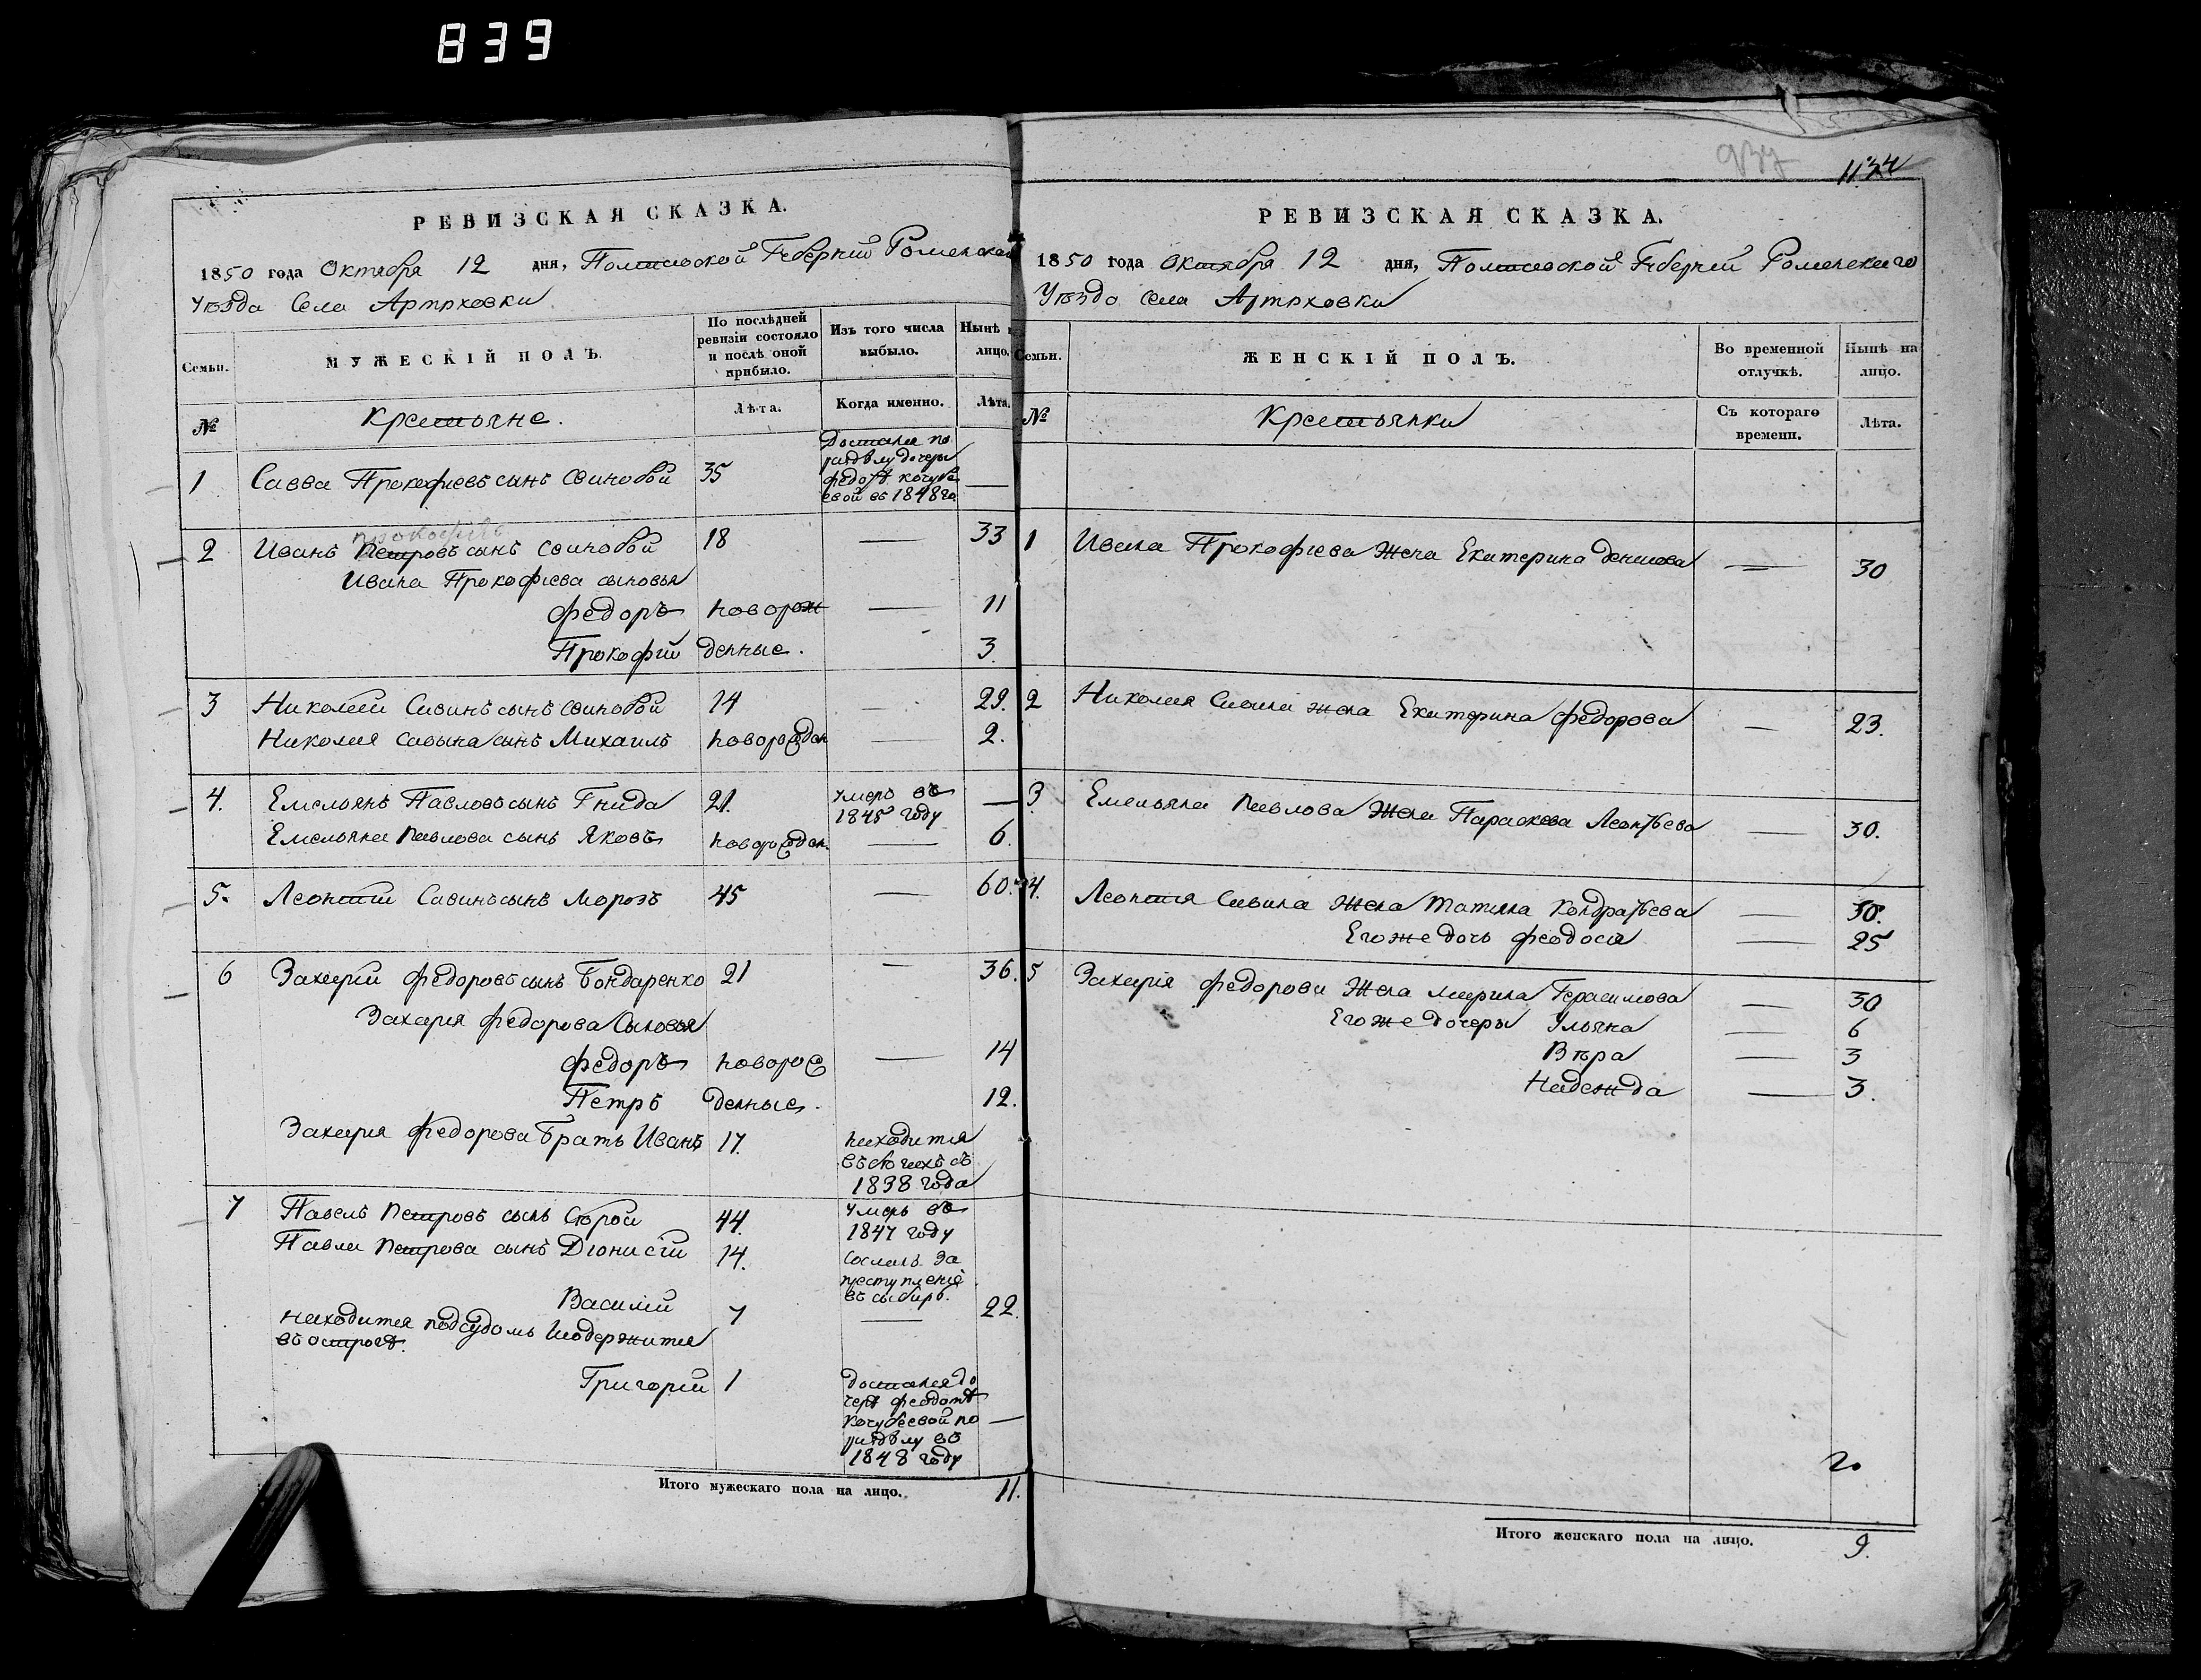 839
РЕВИЗСКАЯ СКАЗКА.
1850 года Октября 12 дня, Полтавской Губерній Роменскаго
Уѣзда Села Артюховки
Семьи.
МУЖЕСКІЙ ПОЛЪ.
По послѣдней ревизіи состояло и послѣ оной прибыло.
Изъ того числа выбыло.
Нынѣ на лицо.
№
Крестьяне.
Лѣта.
Когда именно.
Лѣта.
1 Савва Прокофіевъ сынъ Свинобой 35 Достался по
раздѣлу дочери
Федотѣ Кочубе
евой въ 1848 го. —
Прокофіевъ
2 Иванъ Петровъ сынъ Свинобой 18 — 33
Ивана Прокофіева сыновья
Федоръ новорож — 11
Прокофій денные. 3.
3 Николай Савинъ сынъ Свинобой 14 — 29.
Николая Савына сынъ Михаилъ новорожден — 2.
4. Емельянъ Павловъ сынъ Гнида 21. умеръ въ
1845 году —
Емельяна Павлова сынъ Яковъ новорожден. — 6.
5. Леонтій Савинъ сынъ Морозъ 45 — 60.
6 Захарій Федоровъ сынъ Бондаренко 21 — 36.
Захарія Федорова Сыновья
Федоръ новорож — 14
Петръ денные. 12.
Захарія Федорова Братъ Иванъ 17. находится
въ бѣгахъ съ
1838 года
7 Павелъ Петровъ сынъ Сѣрой 44. умеръ въ
1847 году
Павла Петрова сынъ Діонисій 14. Сосланъ за
преступленіе
въ сыбирь.
Василій 7 — 22.
находится подсудомъ Исодержится
въ острогѣ.
Григорій 1 Достался до
черѣ Феодотѣ
Кочубеевой по —
раздѣлу въ
1848 году
Итого мужескаго пола на лицо. 11.
1134
РЕВИЗСКАЯ СКАЗКА.
1850 года Октября 12 дня, Полтавской Губерній Роменскаго
Уѣзда Села Артюховки
Семьи.
ЖЕНСКІЙ ПОЛЪ.
Во временной отлучкѣ.
Нынѣ на лицо.
№
Крестьянки
Съ котораго времени.
Лѣта.
1 Ивана Прокофіева Жена Екатерина Денисова — 30
2 Николая Савина жена Екатерина Федорова — 23.
3 Емельяна Павлова Жена Параскева Леонтьева — 30.
4. Леонтія Савина Жена Татіяна Кондратьева — 50.
Его же дочь Феодосія — 25
5 Захарія Федорова Жена Марина Герасимова — 30
Его же Дочеры Ульяна — 6
Вѣра — 3
Надежда — 3.
Итого женскаго пола на лицо. 9.